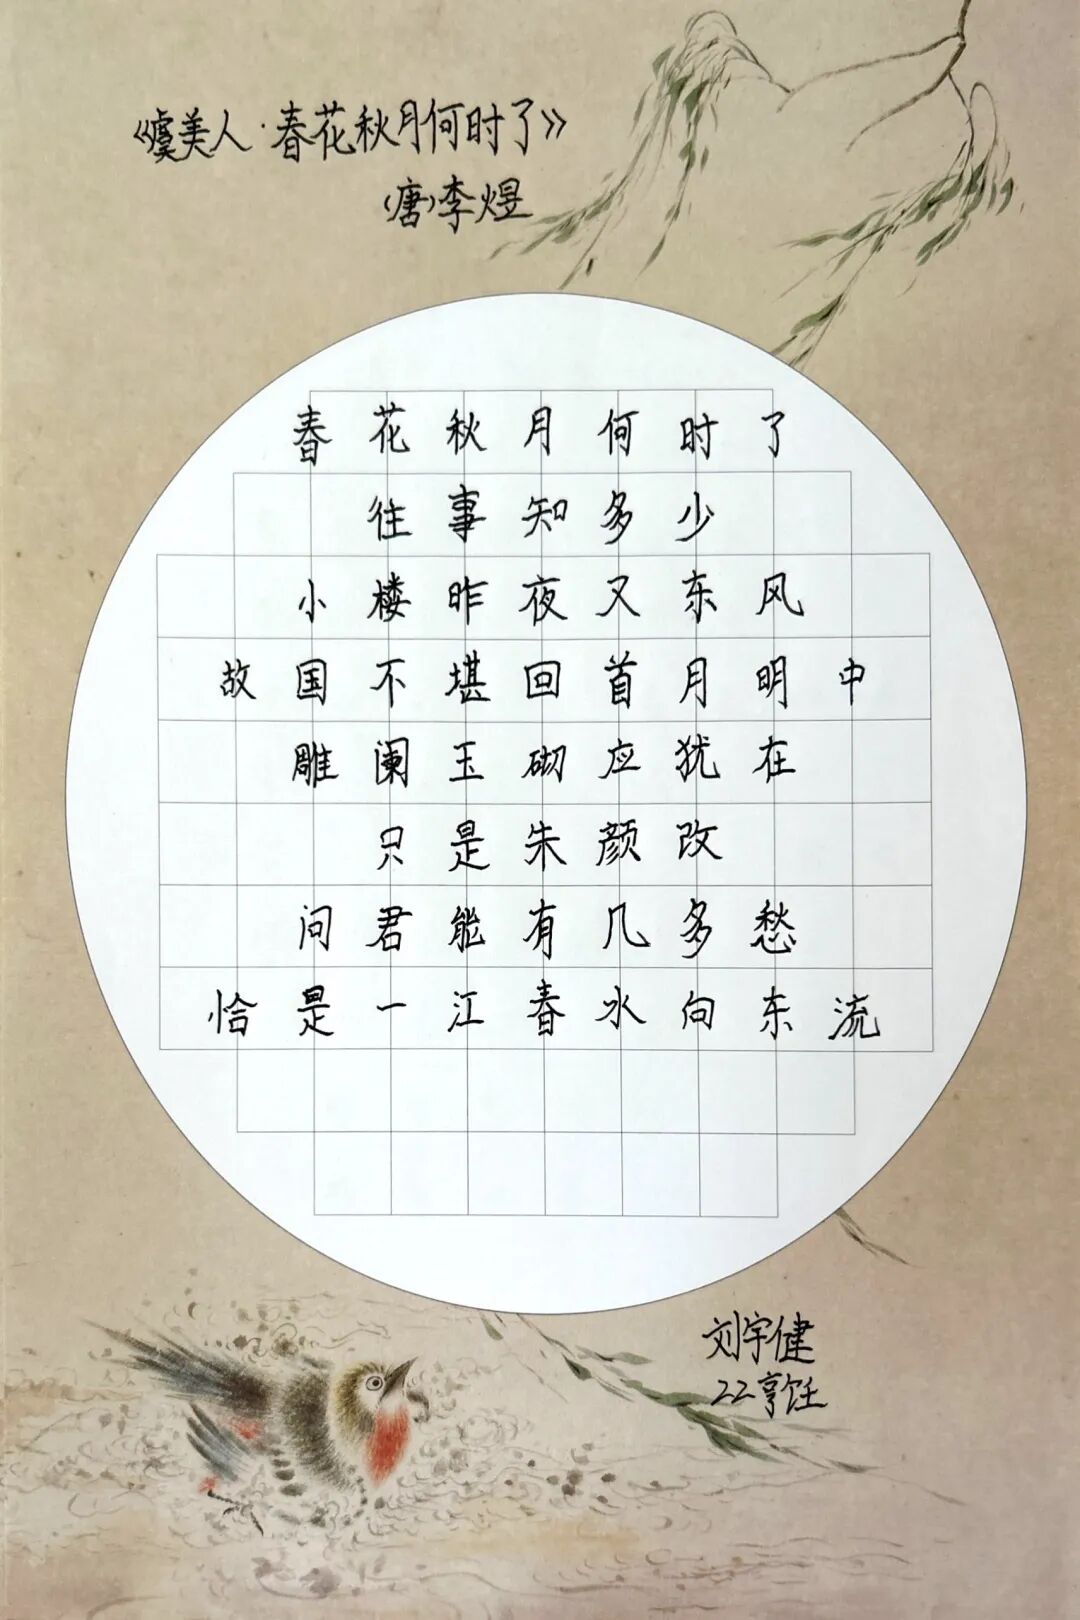 《虞美人·春花秋月何时了》
(唐)李煜
春花秋月何时了
往事知多少
小楼昨夜又东风
故国不堪回首月明中
雕阑玉砌应犹在
只是朱颜改
问君能有几多愁
恰是一江春水向东流
刘宇健
22烹饪